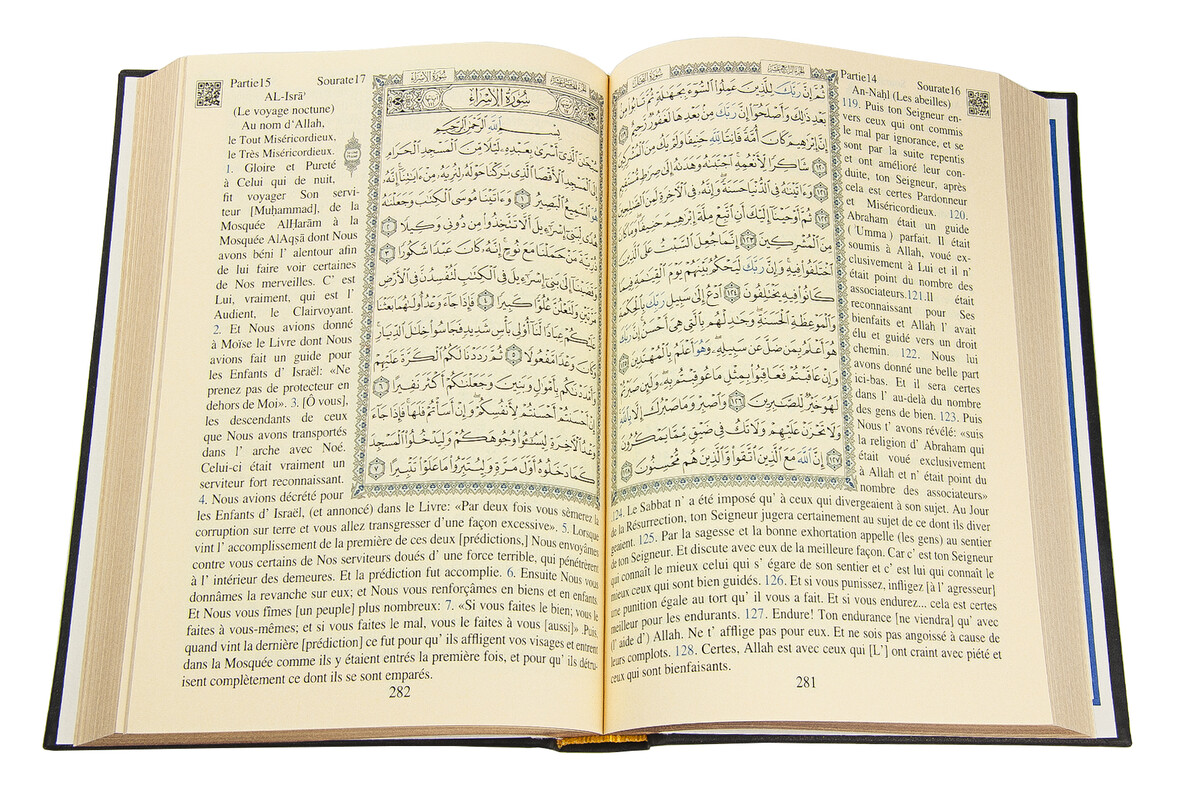 Partie14 Sourate16
An-Naḥl (Les abeilles)
119. Puis ton Seigneur en-
vers ceux qui ont commis
le mal par ignorance, et se
sont par la suite repentis
et ont amélioré leur con-
duite, ton Seigneur, après
cela est certes Pardonneur
et Miséricordieux. 120.
Abraham était un guide
(ʿUmma) parfait. Il était
soumis à Allah, voué ex-
clusivement à Lui et il n'
était point du nombre des
associateurs.121.Il était
reconnaissant pour Ses
bienfaits et Allah l' avait
élu et guidé vers un droit
chemin. 122. Nous lui
avons donné une belle part
ici-bas. Et il sera certes
dans l' au-delà du nombre
des gens de bien. 123. Puis
Nous t' avons révélé: «suis
la religion d' Abraham qui
était voué exclusivement
à Allah et n' était point du
nombre des associateurs»
124. Le Sabbat n' a été imposé qu' à ceux qui divergeaient à son sujet. Au Jour
de la Résurrection, ton Seigneur jugera certainement au sujet de ce dont ils diver
geaient. 125. Par la sagesse et la bonne exhortation appelle (les gens) au sentier
de ton Seigneur. Et discute avec eux de la meilleure façon. Car c' est ton Seigneur
qui connaît le mieux celui qui s' égare de son sentier et c' est lui qui connaît le
mieux ceux qui sont bien guidés. 126. Et si vous punissez, infligez [à l' agresseur]
une punition égale au tort qu' il vous a fait. Et si vous endurez... cela est certes
meilleur pour les endurants. 127. Endure! Ton endurance [ne viendra] qu' avec
(l' aide d') Allah. Ne t' afflige pas pour eux. Et ne sois pas angoissé à cause de
leurs complots. 128. Certes, Allah est avec ceux qui [L'] ont craint avec piété et
ceux qui sont bienfaisants.
281
ثُمَّ إِنَّ رَبَّكَ لِلَّذِينَ عَمِلُوا۟ ٱلسُّوٓءَ بِجَهَـٰلَةٍ ثُمَّ تَابُوا۟ مِنۢ
بَعْدِ ذَٰلِكَ وَأَصْلَحُوٓا۟ إِنَّ رَبَّكَ مِنۢ بَعْدِهَا لَغَفُورٌ رَّحِيمٌ
إِنَّ إِبْرَٰهِيمَ كَانَ أُمَّةً قَانِتًا لِّلَّهِ حَنِيفًا وَلَمْ يَكُ مِنَ ٱلْمُشْرِكِينَ
١٢٠ شَاكِرًا لِّأَنْعُمِهِ ٱجْتَبَىٰهُ وَهَدَىٰهُ إِلَىٰ صِرَٰطٍ مُّسْتَقِيمٍ
١٢١ وَءَاتَيْنَـٰهُ فِى ٱلدُّنْيَا حَسَنَةً وَإِنَّهُۥ فِى ٱلْـَٔاخِرَةِ لَمِنَ ٱلصَّـٰلِحِينَ
١٢٢ ثُمَّ أَوْحَيْنَآ إِلَيْكَ أَنِ ٱتَّبِعْ مِلَّةَ إِبْرَٰهِيمَ حَنِيفًا وَمَا كَانَ
مِنَ ٱلْمُشْرِكِينَ ١٢٣ إِنَّمَا جُعِلَ ٱلسَّبْتُ عَلَى ٱلَّذِينَ
ٱخْتَلَفُوا۟ فِيهِ وَإِنَّ رَبَّكَ لَيَحْكُمُ بَيْنَهُمْ يَوْمَ ٱلْقِيَـٰمَةِ فِيمَا
كَانُوا۟ فِيهِ يَخْتَلِفُونَ ١٢٤ ٱدْعُ إِلَىٰ سَبِيلِ رَبِّكَ بِٱلْحِكْمَةِ
وَٱلْمَوْعِظَةِ ٱلْحَسَنَةِ وَجَـٰدِلْهُم بِٱلَّتِى هِىَ أَحْسَنُ إِنَّ رَبَّكَ
هُوَ أَعْلَمُ بِمَن ضَلَّ عَن سَبِيلِهِۦ وَهُوَ أَعْلَمُ بِٱلْمُهْتَدِينَ ١٢٥
وَإِنْ عَاقَبْتُمْ فَعَاقِبُوا۟ بِمِثْلِ مَا عُوقِبْتُم بِهِۦ وَلَئِن صَبَرْتُمْ
لَهُوَ خَيْرٌ لِّلصَّـٰبِرِينَ ١٢٦ وَٱصْبِرْ وَمَا صَبْرُكَ إِلَّا بِٱللَّهِ
وَلَا تَحْزَنْ عَلَيْهِمْ وَلَا تَكُ فِى ضَيْقٍ مِّمَّا يَمْكُرُونَ
١٢٧ إِنَّ ٱللَّهَ مَعَ ٱلَّذِينَ ٱتَّقَوا۟ وَّٱلَّذِينَ هُم مُّحْسِنُونَ ١٢٨
Partie15 Sourate17
AL-Isrāʾ
(Le voyage noctune)
Au nom d'Allah,
le Tout Miséricordieux.
le Très Miséricordieux.
1. Gloire et Pureté
à Celui qui de nuit,
fit voyager Son servi-
teur [Muḥammad], de la
Mosquée AlḤarām à la
Mosquée AlAqṣā dont Nous
avons béni l' alentour afin
de lui faire voir certaines
de Nos merveilles. C' est
Lui, vraiment, qui est l'
Audient, le Clairvoyant.
2. Et Nous avions donné
à Moïse le Livre dont Nous
avions fait un guide pour
les Enfants d' Israël: «Ne
prenez pas de protecteur en
dehors de Moi». 3. [Ô vous],
les descendants de ceux
que Nous avons transportés
dans l' arche avec Noé.
Celui-ci était vraiment un
serviteur fort reconnaissant.
4. Nous avions décrété pour
les Enfants d' Israël, (et annoncé) dans le Livre: «Par deux fois vous sèmerez la
corruption sur terre et vous allez transgresser d'une façon excessive». 5. Lorsque
vint l' accomplissement de la première de ces deux [prédictions,] Nous envoyâmes
contre vous certains de Nos serviteurs doués d' une force terrible, qui pénétrèrent
à l' intérieur des demeures. Et la prédiction fut accomplie. 6. Ensuite Nous vous
donnâmes la revanche sur eux; et Nous vous renforçâmes en biens et en enfants.
Et Nous vous fîmes [un peuple] plus nombreux: 7. «Si vous faites le bien; vous le
faites à vous-mêmes; et si vous faites le mal, vous le faites à vous [aussi]» .Puis,
quand vint la dernière [prédiction] ce fut pour qu' ils affligent vos visages et entrent
dans la Mosquée comme ils y étaient entrés la première fois, et pour qu' ils détru-
isent complètement ce dont ils se sont emparés.
282
سُورَةُ الإِسْرَاءِ
سُورَةُ الإِسْرَاءِ
بِسْمِ ٱللَّهِ ٱلرَّحْمَـٰنِ ٱلرَّحِيمِ
سُبْحَـٰنَ ٱلَّذِىٓ أَسْرَىٰ بِعَبْدِهِۦ لَيْلًا مِّنَ ٱلْمَسْجِدِ ٱلْحَرَامِ
إِلَى ٱلْمَسْجِدِ ٱلْأَقْصَا ٱلَّذِى بَـٰرَكْنَا حَوْلَهُۥ لِنُرِيَهُۥ مِنْ ءَايَـٰتِنَآ إِنَّهُۥ
هُوَ ٱلسَّمِيعُ ٱلْبَصِيرُ ١ وَءَاتَيْنَا مُوسَى ٱلْكِتَـٰبَ وَجَعَلْنَـٰهُ
هُدًى لِّبَنِىٓ إِسْرَٰٓءِيلَ أَلَّا تَتَّخِذُوا۟ مِن دُونِى وَكِيلًا ٢
ذُرِّيَّةَ مَنْ حَمَلْنَا مَعَ نُوحٍ إِنَّهُۥ كَانَ عَبْدًا شَكُورًا ٣
وَقَضَيْنَآ إِلَىٰ بَنِىٓ إِسْرَٰٓءِيلَ فِى ٱلْكِتَـٰبِ لَتُفْسِدُنَّ فِى ٱلْأَرْضِ
مَرَّتَيْنِ وَلَتَعْلُنَّ عُلُوًّا كَبِيرًا ٤ فَإِذَا جَآءَ وَعْدُ أُولَىٰهُمَا بَعَثْنَا
عَلَيْكُمْ عِبَادًا لَّنَآ أُو۟لِى بَأْسٍ شَدِيدٍ فَجَاسُوا۟ خِلَـٰلَ ٱلدِّيَارِ
وَكَانَ وَعْدًا مَّفْعُولًا ٥ ثُمَّ رَدَدْنَا لَكُمُ ٱلْكَرَّةَ عَلَيْهِمْ
وَأَمْدَدْنَـٰكُم بِأَمْوَٰلٍ وَبَنِينَ وَجَعَلْنَـٰكُمْ أَكْثَرَ نَفِيرًا ٦
إِنْ أَحْسَنتُمْ أَحْسَنتُمْ لِأَنفُسِكُمْ وَإِنْ أَسَأْتُمْ فَلَهَا فَإِذَا جَآءَ
وَعْدُ ٱلْـَٔاخِرَةِ لِيَسُـۥٓـُٔوا۟ وُجُوهَكُمْ وَلِيَدْخُلُوا۟ ٱلْمَسْجِدَ
كَمَا دَخَلُوهُ أَوَّلَ مَرَّةٍ وَلِيُتَبِّرُوا۟ مَا عَلَوْا۟ تَتْبِيرًا ٧